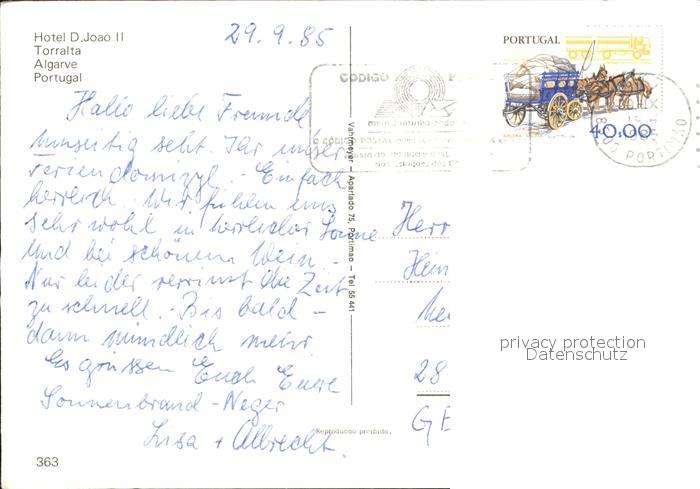 Hotel D.Joao II
Torralta
Algarve
Portugal
29.9.85
Hallo liebe Freunde
umseitig seht Ihr unser
Feriendomizyl. - Einfach
herrlich. Wir fühlen uns
sehr wohl in herrlicher Sonne
und bei schönem Wein -
Nur leider verrinnt die Zeit
zu schnell. Bis bald -
dann mündlich mehr
Es grüssen Euch Eure
Sonnenbrand-Neger
Lisa + Albrecht.
363
Vahlmeyer — Apartado 75, Portimao — Tel 55 441
Reproducao proibida.
PORTUGAL
40.00
CÓDIGO P
CÓDIGO POSTAL
PORTIMÃO
Herr
Hein
28
GE
privacy protection
Datenschutz